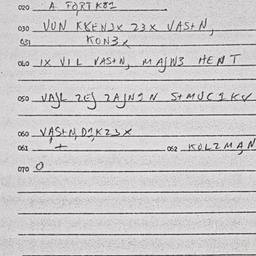 020 A FORTK81
030 VON KKEN3X 23X VAS+N,
031 KON3X
040 IX VIL VAS+N, MAJN3 HENT
050 VAJL ZEJ ZAJN1N S+MUC1KX
060 VAS+N, D1KZ3X
061 + 062 KOLZMAN
070 O